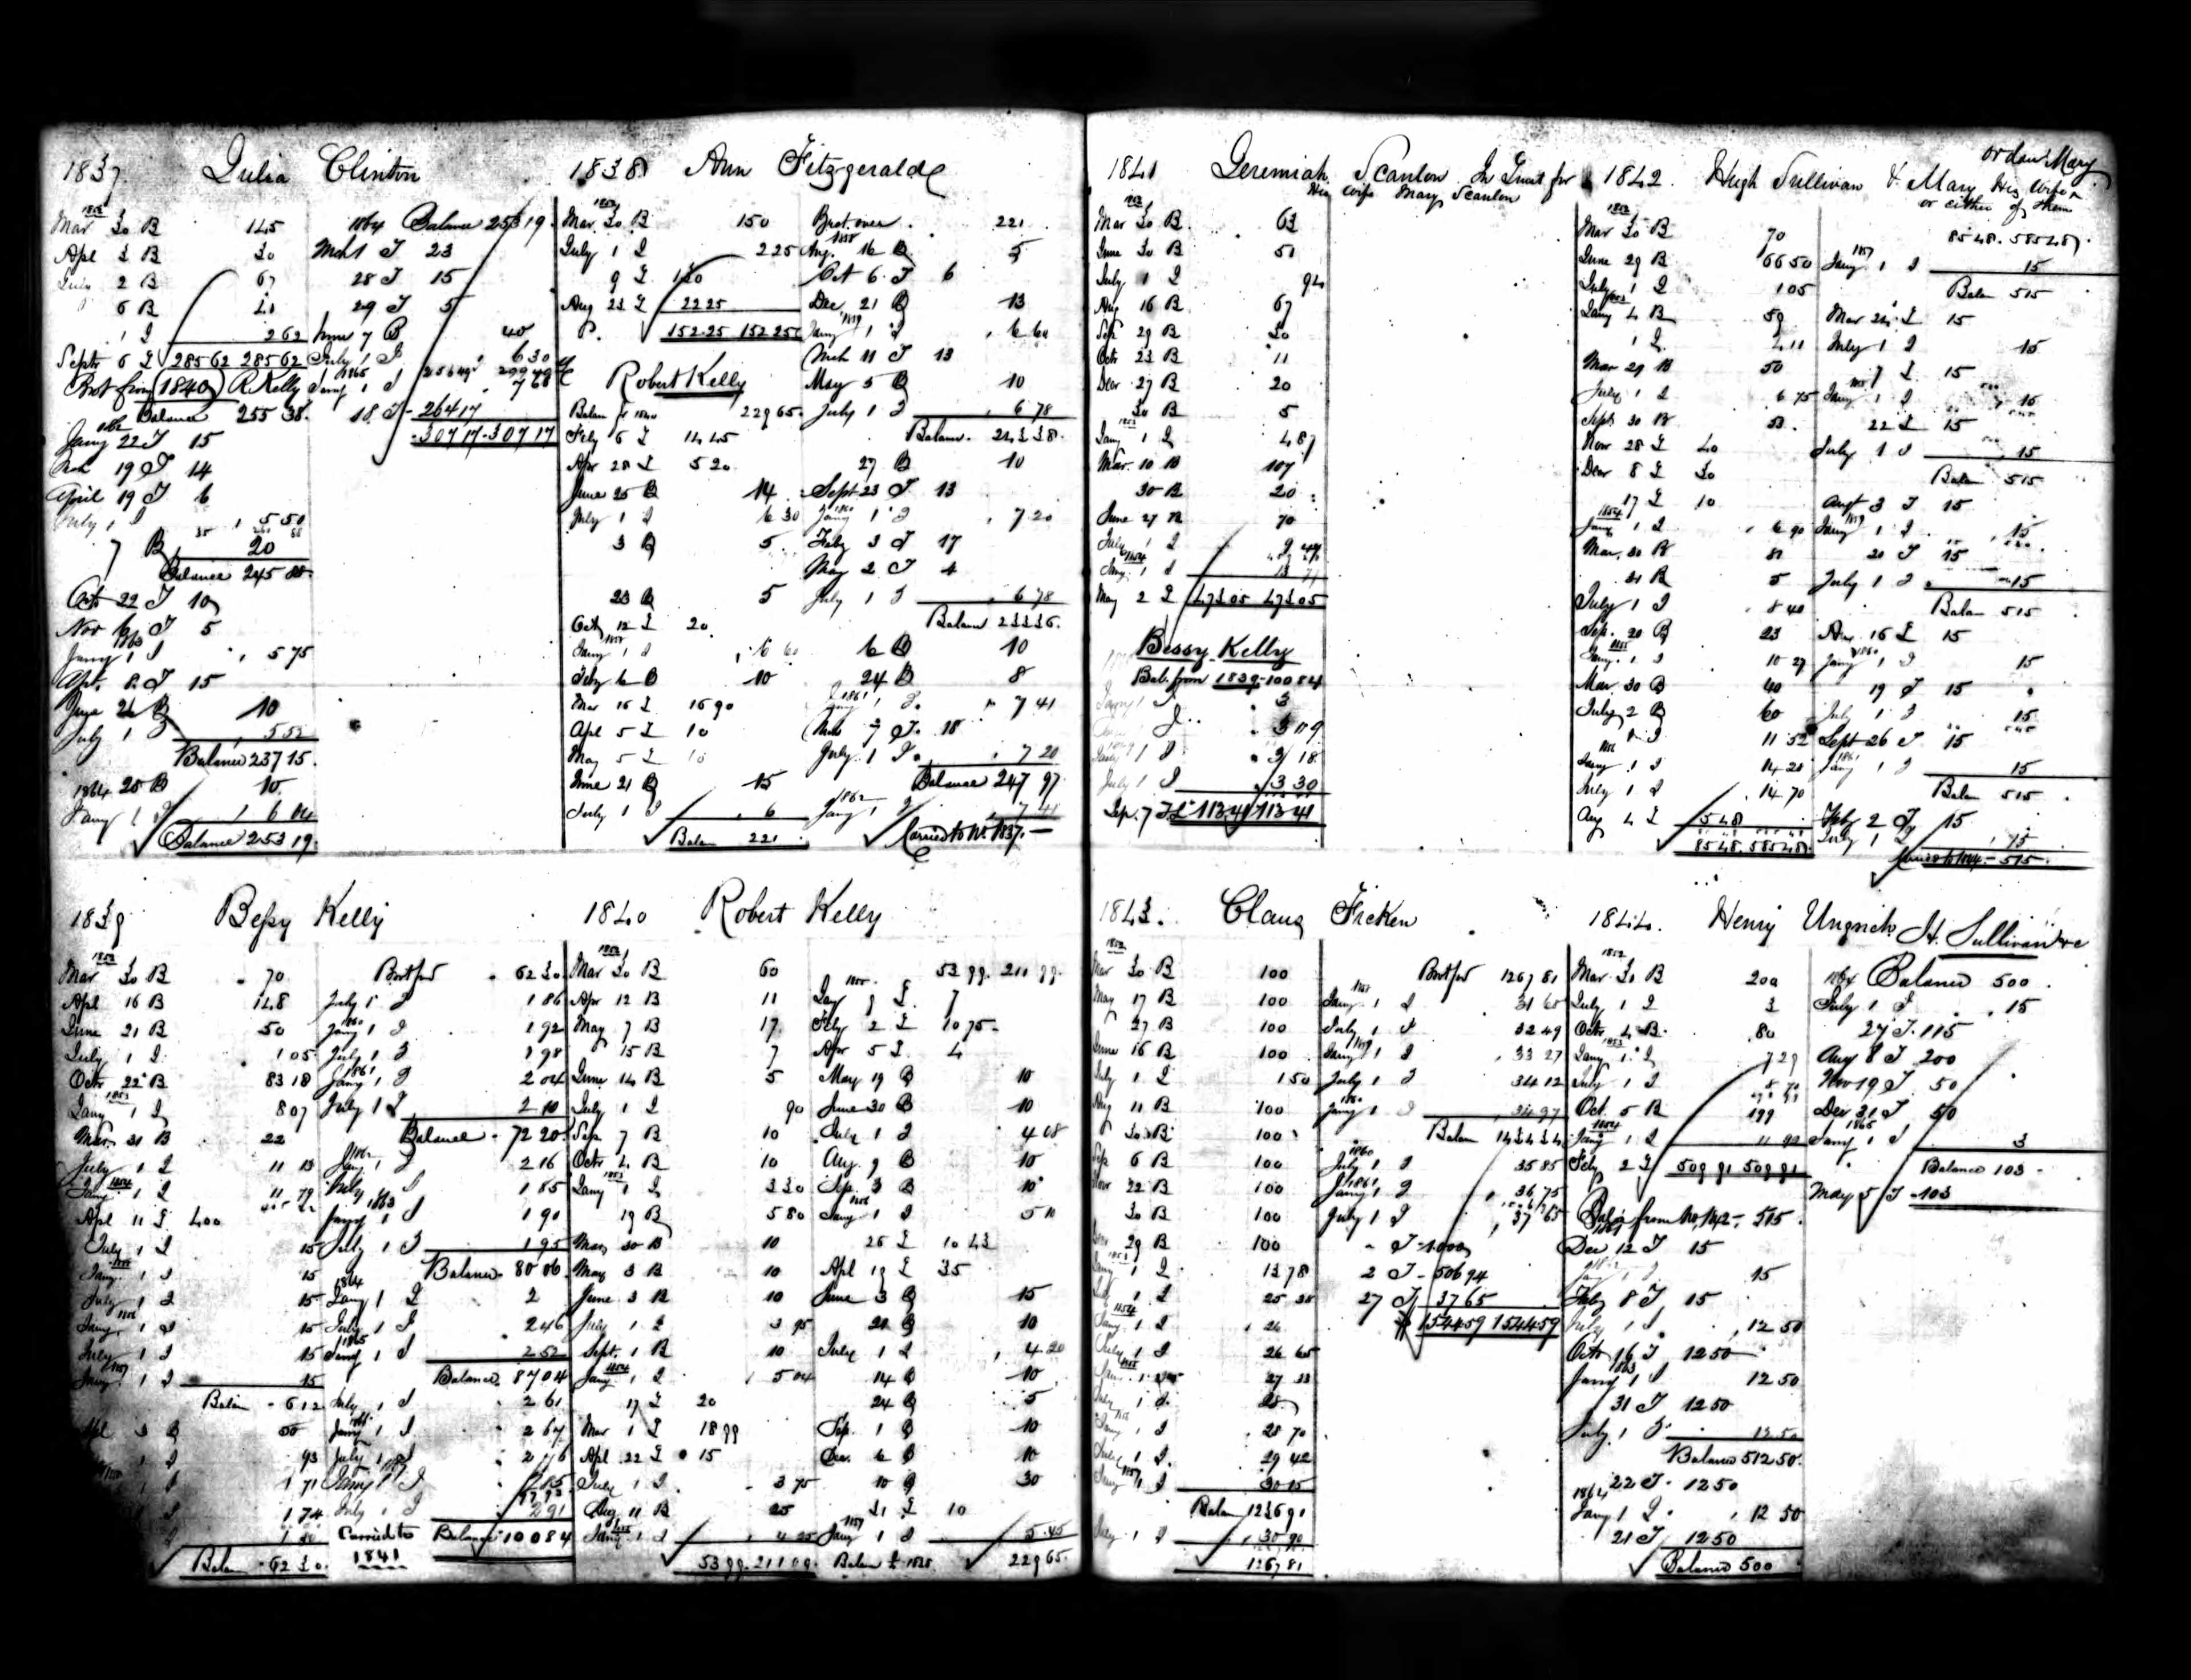 1837. Julia Clinton
1852
Mar 30 B 145
Apl 3 B 30
2 B 67
6 B 41
1 I 2 62
Septr 6 L 285 62 285 62
Brot from 1840 R Kelly
Balance 255 38.
1862
Jany 22 T 15
19 T 14
April 19 T 6
July 1 I 5 50
7 B 20
Balance 245 88.
Octr 22 T 10
Nov 6 T 5
1863
Jany 1 I 5 75
Apr. 8 T 15
June 26 B 10
July 1 I 5 52
Balance 237 15.
25 B 10
1864
Jany 1 I 6 04
Balance 253 19.
1864 Balance 253 19.
Mch 1 T 23
28 T 15
29 T 5
June 7 B 40
July 1 I 6 30
1865
Jany 1 I 7 68
18 T 264 17
307 17 307 17
1838 Ann Fitzgerald
1852
Mar 30 B 150
July 1 I 2 25
9 L 130
Aug 23 L 22 25
152 25 152 25
Robert Kelly
Balan fr 1840 229 65.
Feby 6 L 14 45
Apr 28 L 5 20
June 25 B 14
July 1 I 6 30
3 B 5
23 B 5
Octr 12 L 20
1858
Jany 1 I 6 60
Feby 6 B 10
Mar 16 L 16 90
Apl 5 L 10
May 5 L 10
June 21 B 15
July 1 I 6
Balan 221
Brot over 221
1858
Aug. 16 B 5
Oct 6 T 6
Dec 21 B 13
1859
Jany 1 I 6 60
Mch 11 T 13
May 5 B 10
July 1 I 6 78
Balance. 243 38.
27 B 10
Sept 23 T 13
1860
Jany 1 I 7 20
Feby 3 T 17
May 2 T 4
July 1 I 6 78
Balance 233 36.
6 B 10
24 B 8
1861
Jany 1 I 7 41
Mch 7 T 18
July 1 I 7 20
Balance 247 97
1862
Jany 1 I 7 41
Carried to No. 1837.
1841 Jeremiah Scanlon In Trust for
His wife Mary Scanlon
1852
Mar 30 B 63
June 30 B 51
July 1 I 94
Aug 16 B 67
Sep 29 B 30
Octr 23 B 11
Decr 27 B 20
30 B 5
1853
Jany 1 I 4 87
Mar. 10 B 107
30 B 20
June 27 B 70
July 1 I
1854
Jany 1 I
May 2 L 473 05 473 05
Bessy Kelly
Bal. from 1839 - 100 84
3
3 09
3 18
July 1 I 3 30
Sep. 7 T 113 41 113 41
1842. Hugh Sullivan & Mary His wife
or dau Mary
or either of them
1852
Mar 30 B 70
June 29 B 66 50
July 1 I 1 05
1853
Jany 4 B 59
1 I 4 11
Mar 29 B 50
July 1 I 6 75
Sept. 30 B 53.
Nov 28 L 40
Decr 8 L 30
17 L 10
1854
Jany 1 I 6 90
Mar. 30 B 81
31 B 5
July 1 I 8 40
Sep. 20 B 23
1855
Jany. 1 I 10 27
Mar. 30 B 40
July 2 B 60
1 I 11 52
1856
Jany. 1 I 14 25
July 1 I 14 70
Aug 4 L 5 48
85 48. 585 48.
85 48. 585 48.
1857
Jany 1 I 15
Balan 515
Mar 24 L 15
July 1 I 15
7 L 15
1858
Jany 1 I 15
22 L 15
July 1 I 15
Balan 515
Augt 3 T 15
1859
Jany 1 I 15
20 T 15
July 1 I 15
Balan 515
16 L 15
1860
Jany 1 I 15
19 T 15
July 1 I 15
Sept 26 T 15
1861
Jany 1 I 15
Balan 515
Feby 2 T 15
July 1 I 15
Carried to 1844. - 515.
1839 Bessy Kelly
1852
Mar 30 B 70
Apl 16 B 148
June 21 B 50
July 1 I 1 05
Octr 22 B 83 18
1853
Jany 1 I 8 07
Mar. 31 B 22
July 1 I 11 13
1854
Jany 1 I 11 79
Apl 11 L 400
July 1 I 15
1855
Jany 1 I 15
July 1 I 15
1856
Jany. 1 I 15
July 1 I 15
1857
Jany. 1 I 15
Balan 6 12
3 B 50
1 I 93
1 I 1 71
1 74
Balan 62 30
Brot for 62 30
July 1 I 1 86
1860
Jany 1 I 1 92
July 1 I 1 98
1861
Jany 1 I 2 04
July 1 I 2 10
Balance 72 20
1862
Jany 1 I 2 16
July 1 I 1 85
1863
Jany 1 I 1 90
July 1 I 1 95
Balance 80 06
1864
Jany 1 I 2
July 1 I 2 46
1865
Jany 1 I 2 52
Balance 87 04
July 1 I 2 61
1866
Jany 1 I 2 67
July 1 I 2 76
1867
Jany 1 I 2 85
July 1 I 2 91
Carried to 1841 Balance 100 84
1840 Robert Kelly
1852
Mar 30 B 60
Apr 12 B 11
May 7 B 17
15 B 7
June 14 B 5
July 1 I 90
Sep 7 B 10
Octr 4 B 10
1853
Jany 1 I 3 30
19 B 5 80
Mar 30 B 10
May 3 B 10
June 3 B 10
July 1 I 3 95
Sept. 1 B 10
1854
Jany 1 I 5 04
17 L 20
Mar 1 L 18 99
Apl 22 L 15
July 1 I 3 75
Aug 11 B 25
1855
Jany 1 I 4 25
53 99. 211 09.
53 99. 211 99.
1855.
Jay 9 L 7
Feby 2 L 10 75
Apr 5 L 4
May 19 B 10
June 30 B 10
July 1 I 4 68
Aug. 9 B 10
Sep. 3 B 10
1856
Jany 1 I 5 10
26 L 10 43
Apl 19 L 35
June 3 B 15
21 B 10
July 1 I 4 20
14 B 10
24 B 5
Sep. 1 B 10
Dec. 6 B 10
10 B 30
31 L 10
1857
Jany 1 I 5 45
Balan to 1838 229 65.
1843. Claus Ficken
1852
Mar 30 B 100
May 17 B 100
27 B 100
June 16 B 100
July 1 I 1 50
Aug 11 B 100
30 B 100
Sep 6 B 100
Nov 22 B 100
30 B 100
29 B 100
1853
1 I 13 78
1 I 25 38
1854
Jany 1 I 26
July 1 I 26 65
1855
1 I 27 33
1 I 28
1856
1 I 28 70
July 1 I 29 42
1857
Jany 1 I 30 15
Balan 1236 91
July 1 I 30 90
1267 81
Brot for 1267 81
1858
Jany 1 I 31 65
July 1 I 32 49
1859
Jany 1 I 33 27
July 1 I 34 12
1860
Jany 1 I 34 97
Balan 1434 34
1860
July 1 I 35 85
1861
Jany 1 I 36 75
July 1 I 37 65
T 1000
2 T 506 94
27 T 37 65
1544 59 1544 59
1844. Henry Ungrich H. Sullivan &c
1852
Mar 30 B 200
July 1 I 3
Octr 4 B 80
1853
Jany 1 I 7 29
July 1 I 8 70
Oct. 5 B 199
1854
Jany 1 I 11 92
Feby 2 L 509 91 509 91
Bal. from No. 1842 - 515.
1861
Dec 12 T 15
1862
Jany 1 I 15
July 8 T 15
July 1 I 12 50
Octr 16 T 12 50
1863
Jany 1 I 12 50
31 T 12 50
July 1 I 12 50
Balance 512 50.
22 T 12 50
1864
Jany 1 I 12 50
21 T 12 50
Balance 500
1864 Balance 500
July 1 I 15
27 T 115
Aug 8 T 200
Nov 19 T 50
Dec 31 T 50
1865
Jany 1 I 3
Balance 103
May 5 T 103